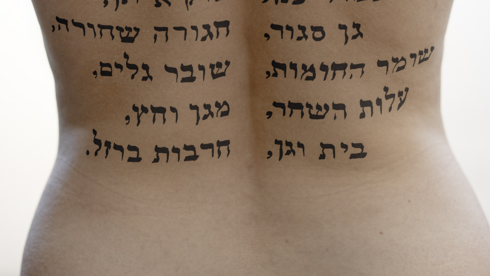 גן סגור, חגורה שחורה,
שומר החומות, שובר גלים,
עלות השחר, מגן וחץ,
בית וגן, חרבות ברזל.